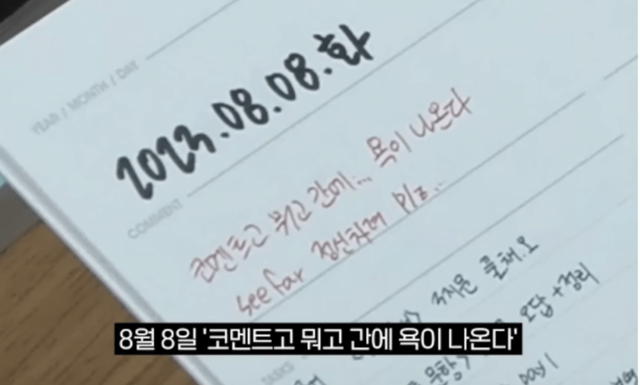 YEAR / MONTH / DAY
2023.08.08.화
COMMENT
코멘트고 뭐고 간에... 욕이 나온다
see far 정신차려 plz...
3지문 클채.오
오답+정리
Day1
TASKS
8월 8일 '코멘트고 뭐고 간에 욕이 나온다'